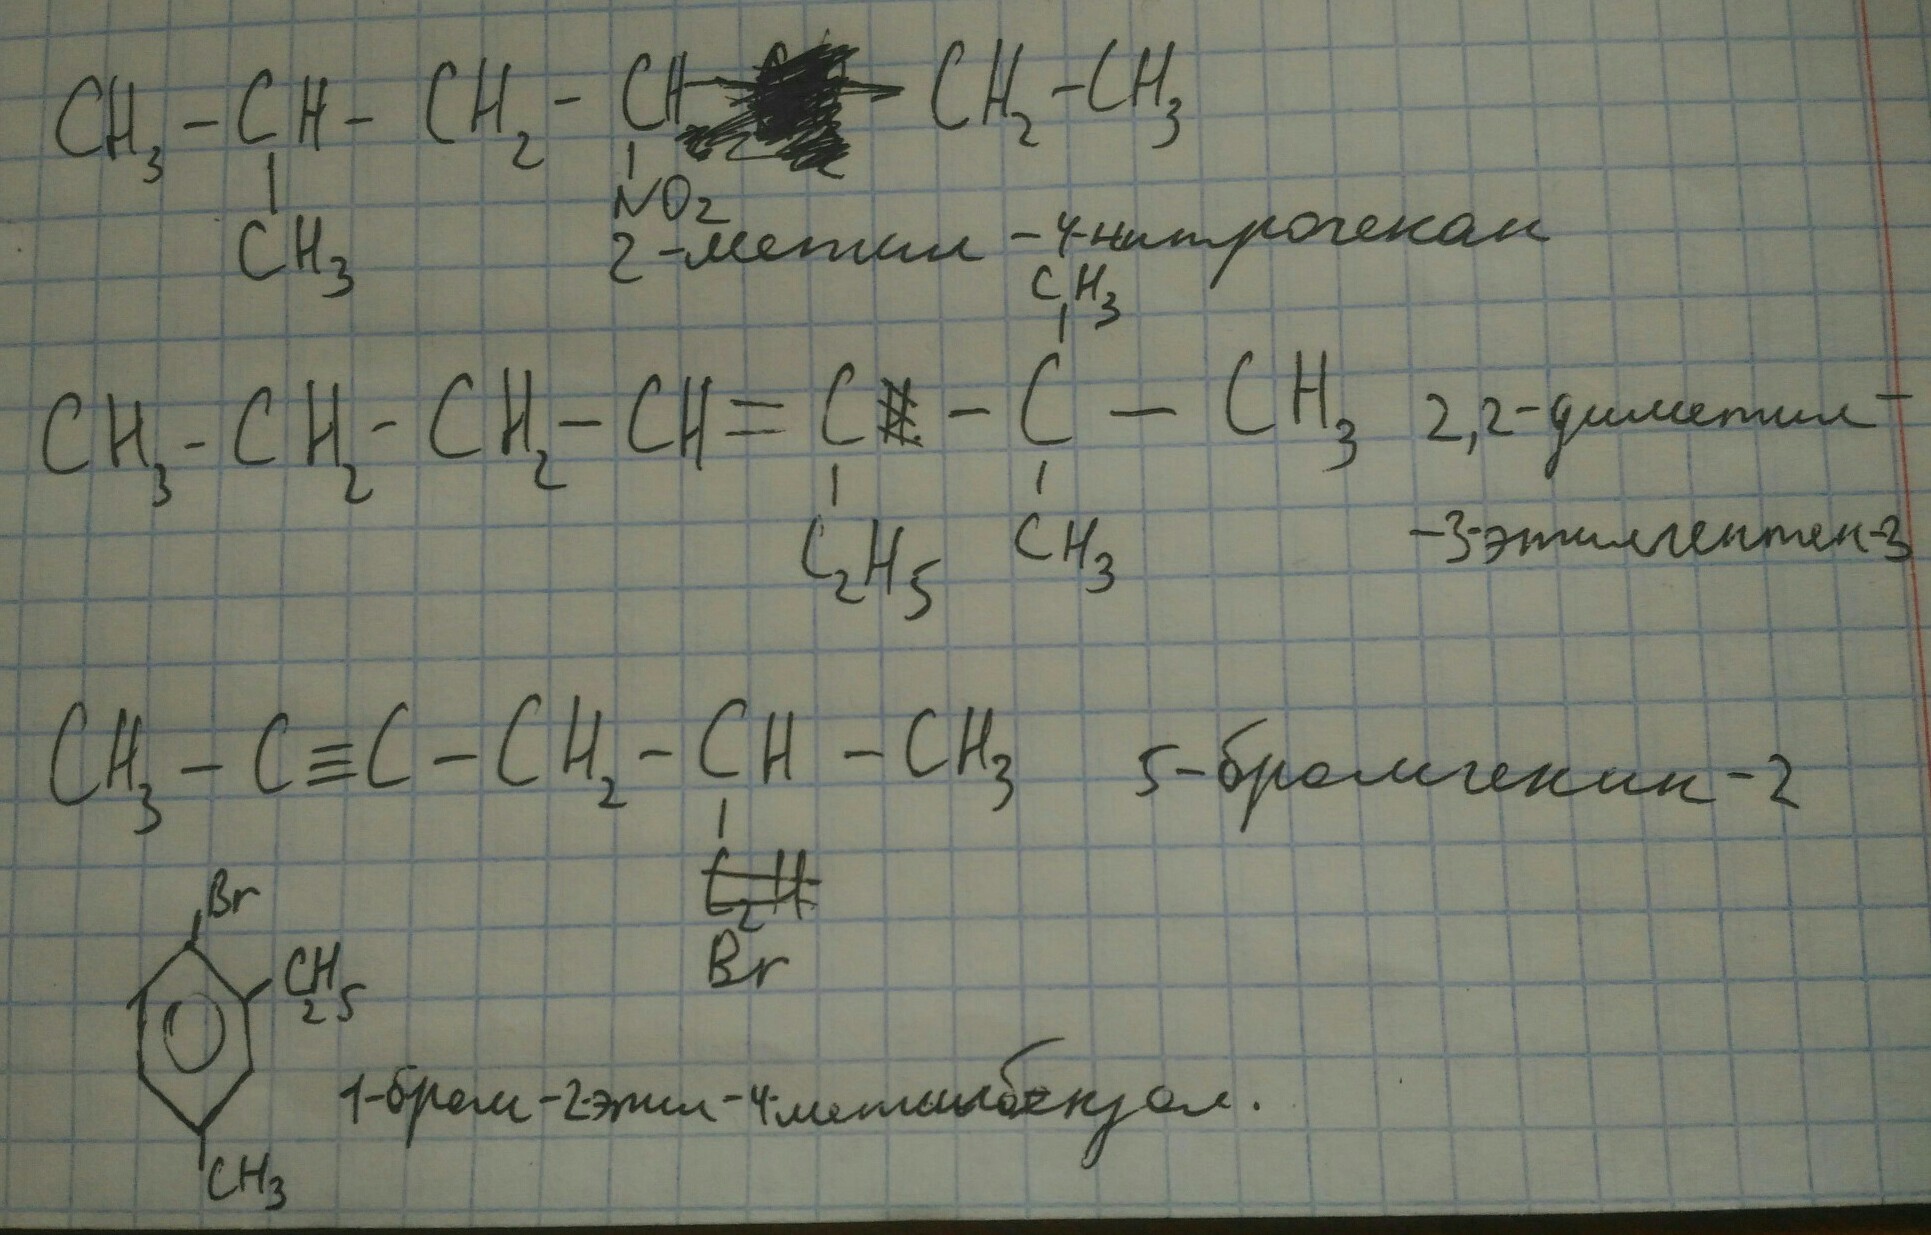 CH₃ - CH - CH₂ - CH - CH₂ - CH₃
CH₃
NO₂
2-метил-4-нитрогекан
CH₃
CH₃ - CH₂ - CH₂ - CH = C - C - CH₃
2,2-диметил-
C₂H₅
CH₃
-3-этилгептен-3
CH₃ - C ≡ C - CH₂ - CH - CH₃
5-бромгекин-2
Br
Br
C₂H₅
1-бром-2-этил-4-метилбензол.
CH₃